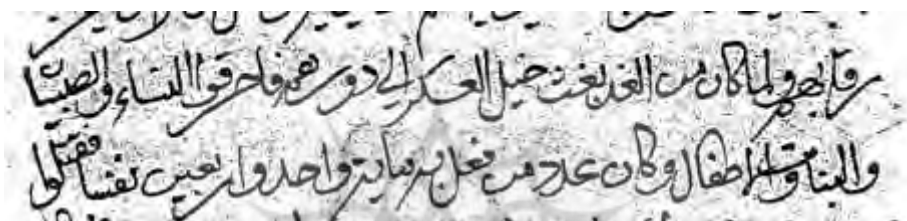 رقابهم ولما كان من الغد بعث خيل العسكر الى دورهم فاحرقوا النساء والصبيان
والبنات والاطفال وكان عدد من فعل به مائة واحد واربعين نفسا فقتلوا